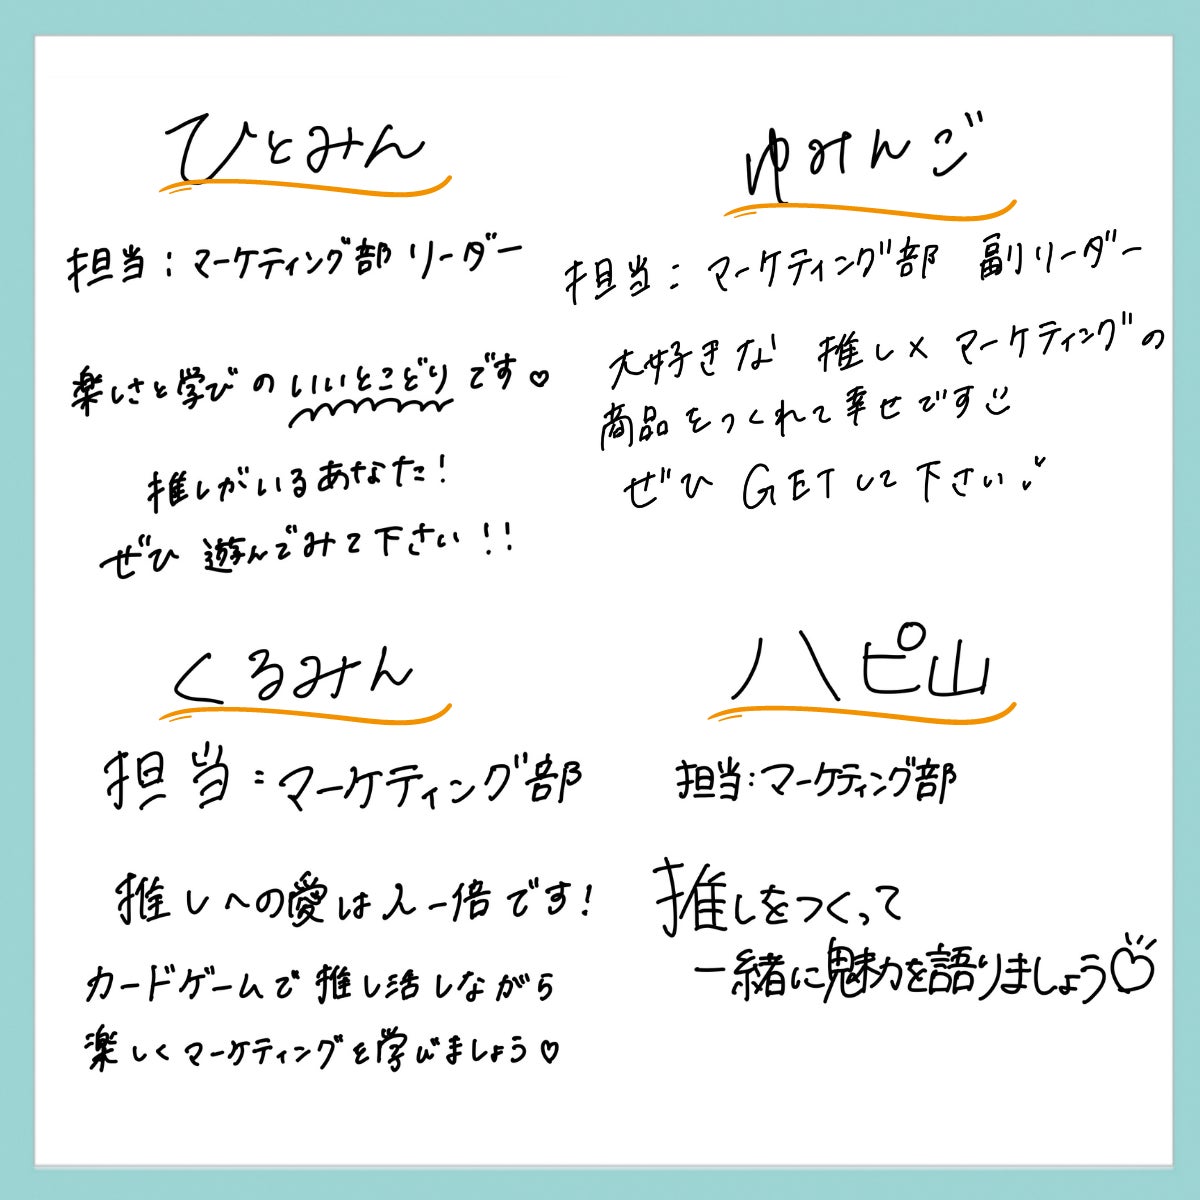 ひとみん
担当：マーケティング部 リーダー
楽しさと学びのいいとこどりです♡
推しがいるあなた！
ぜひ 遊んでみて下さい！！
ゆみんご
担当：マーケティング部 副リーダー
大好きな 推し×マーケティングの
商品をつくれて幸せです
ぜひ GETして下さい
くるみん
担当：マーケティング部
推しへの愛は人一倍です！
カードゲームで推し活しながら
楽しくマーケティングを学びましょう♡
ハピ山
担当：マーケティング部
推しをつくって
一緒に魅力を語りましょう♡